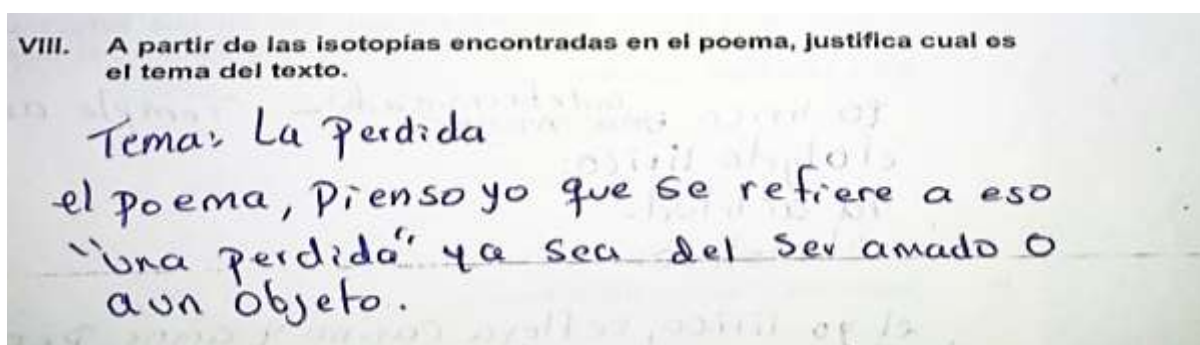 VIII. A partir de las isotopías encontradas en el poema, justifica cual es
el tema del texto.
Tema: La Perdida
el poema, Pienso yo que se refiere a eso
"Una perdida" ya sea del Ser amado o
aun objeto.